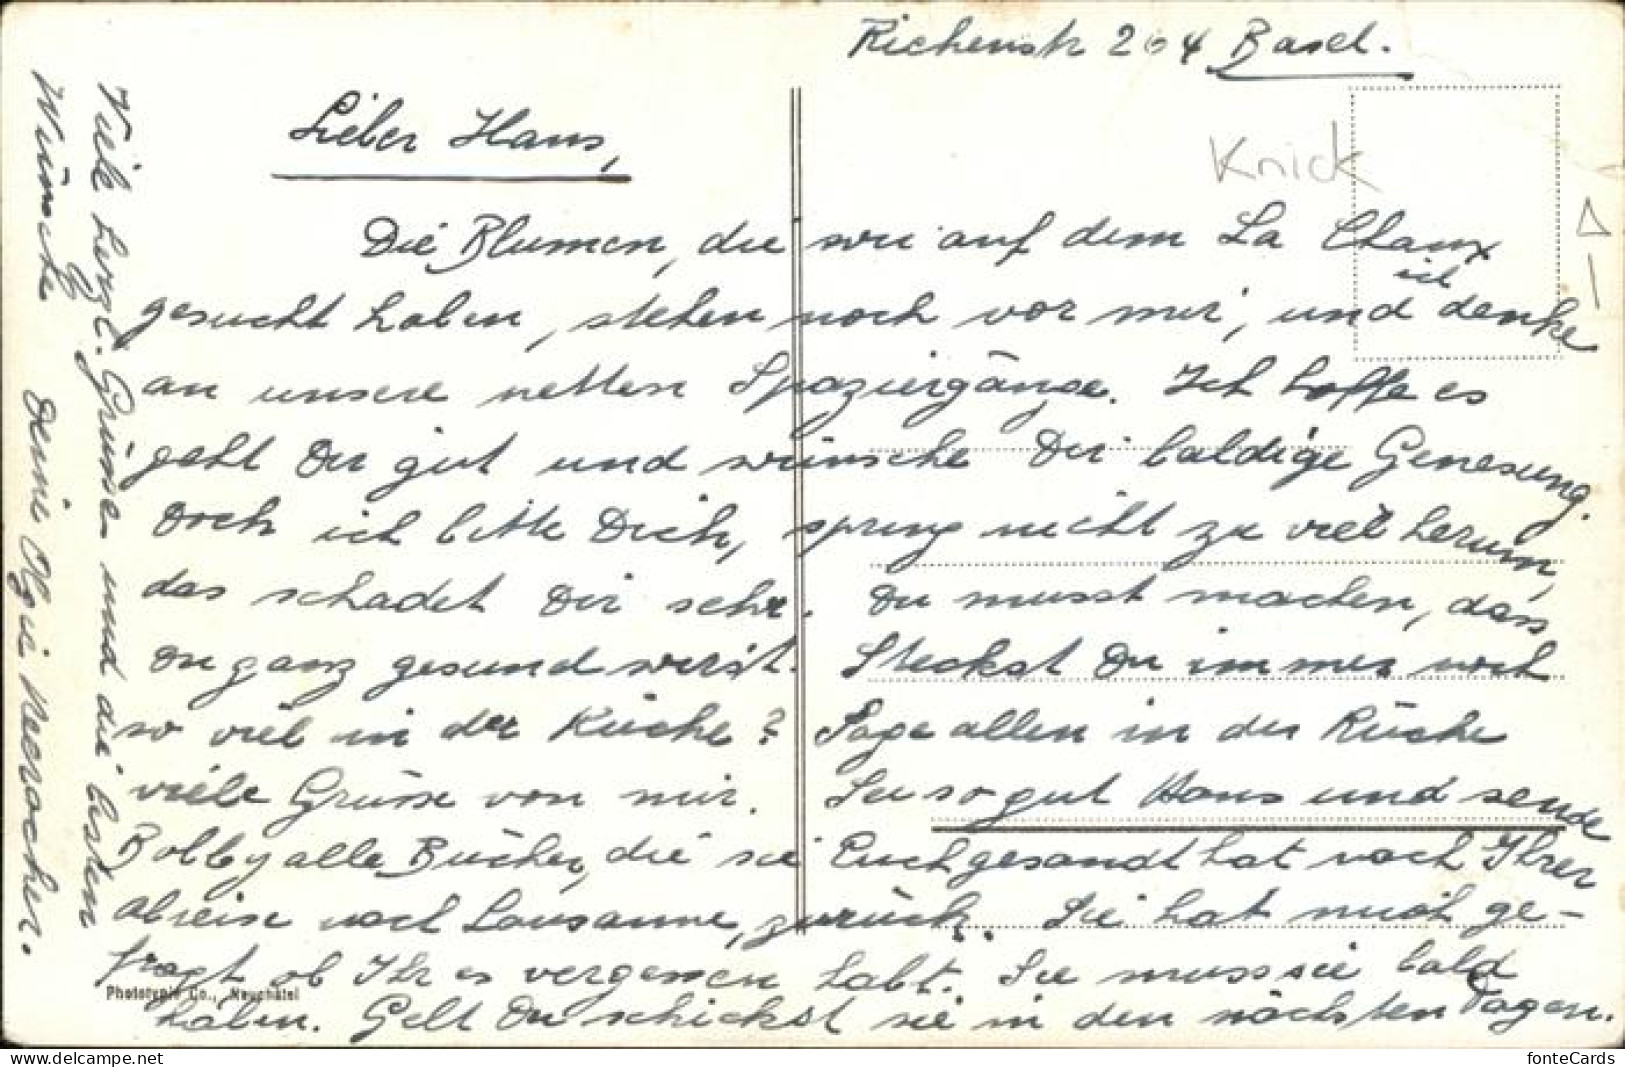 Richenstr 204 Basel.
Knick
Lieber Hans,
Die Blumen, die wir auf dem La Chaux
gesucht haben, stehen noch vor mir, und ich denke
an unsere netten Spaziergänge. Ich hoffe es
geht Dir gut und wünsche Dir baldige Genesung.
Doch ich bitte Dich, spring nicht zu viel herum,
das schadet Dir sehr. Du musst machen, dass
Du ganz gesund wirst. Steckst Du immer noch
so viel in der Küche? Sage allen in der Küche
viele Grüsse von mir. Sei so gut Hans und sende
Bobby alle Bücher, die sie Euch gesandt hat nach Ihrer
abreise nach Lausanne, zurück. Sie hat mich ge-
fragt ob Ihr es vergessen habt. Sie muss sie bald
haben. Gelt Du schickst sie in den nächsten Tagen.
Viele herzl. Grüsse und die besten
Wünsche Deine Olgi Neeracher.
Phototypie Co., Neuchâtel
www.delcampe.net
fonteCards